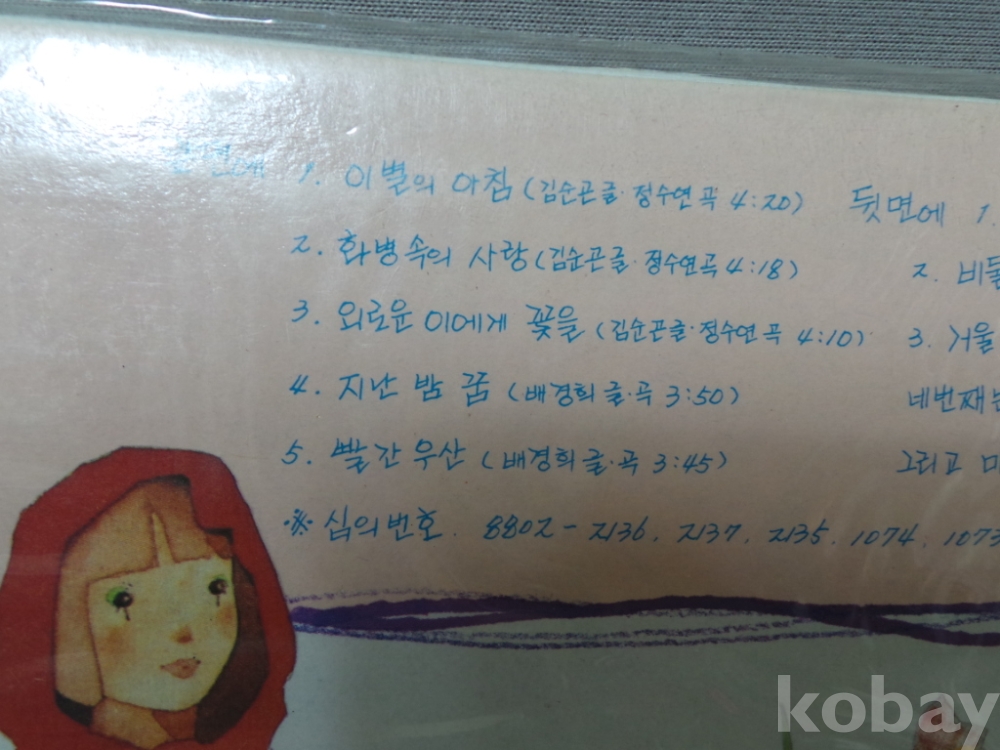 1. 이별의 아침 (김순곤글·정수연곡 4:20) 뒷면에 1.
2. 화병속의 사랑 (김순곤글·정수연곡 4:18) 2. 비둘
3. 외로운 이에게 꽃을 (김순곤글·정수연곡 4:10) 3. 거울
4. 지난 밤 꿈 (배경희글·곡 3:50) 네번째는
5. 빨간우산 (배경희글·곡 3:45) 그리고 마
※ 심의번호. 8802-2136, 2137, 2135, 1074, 1073
kobay